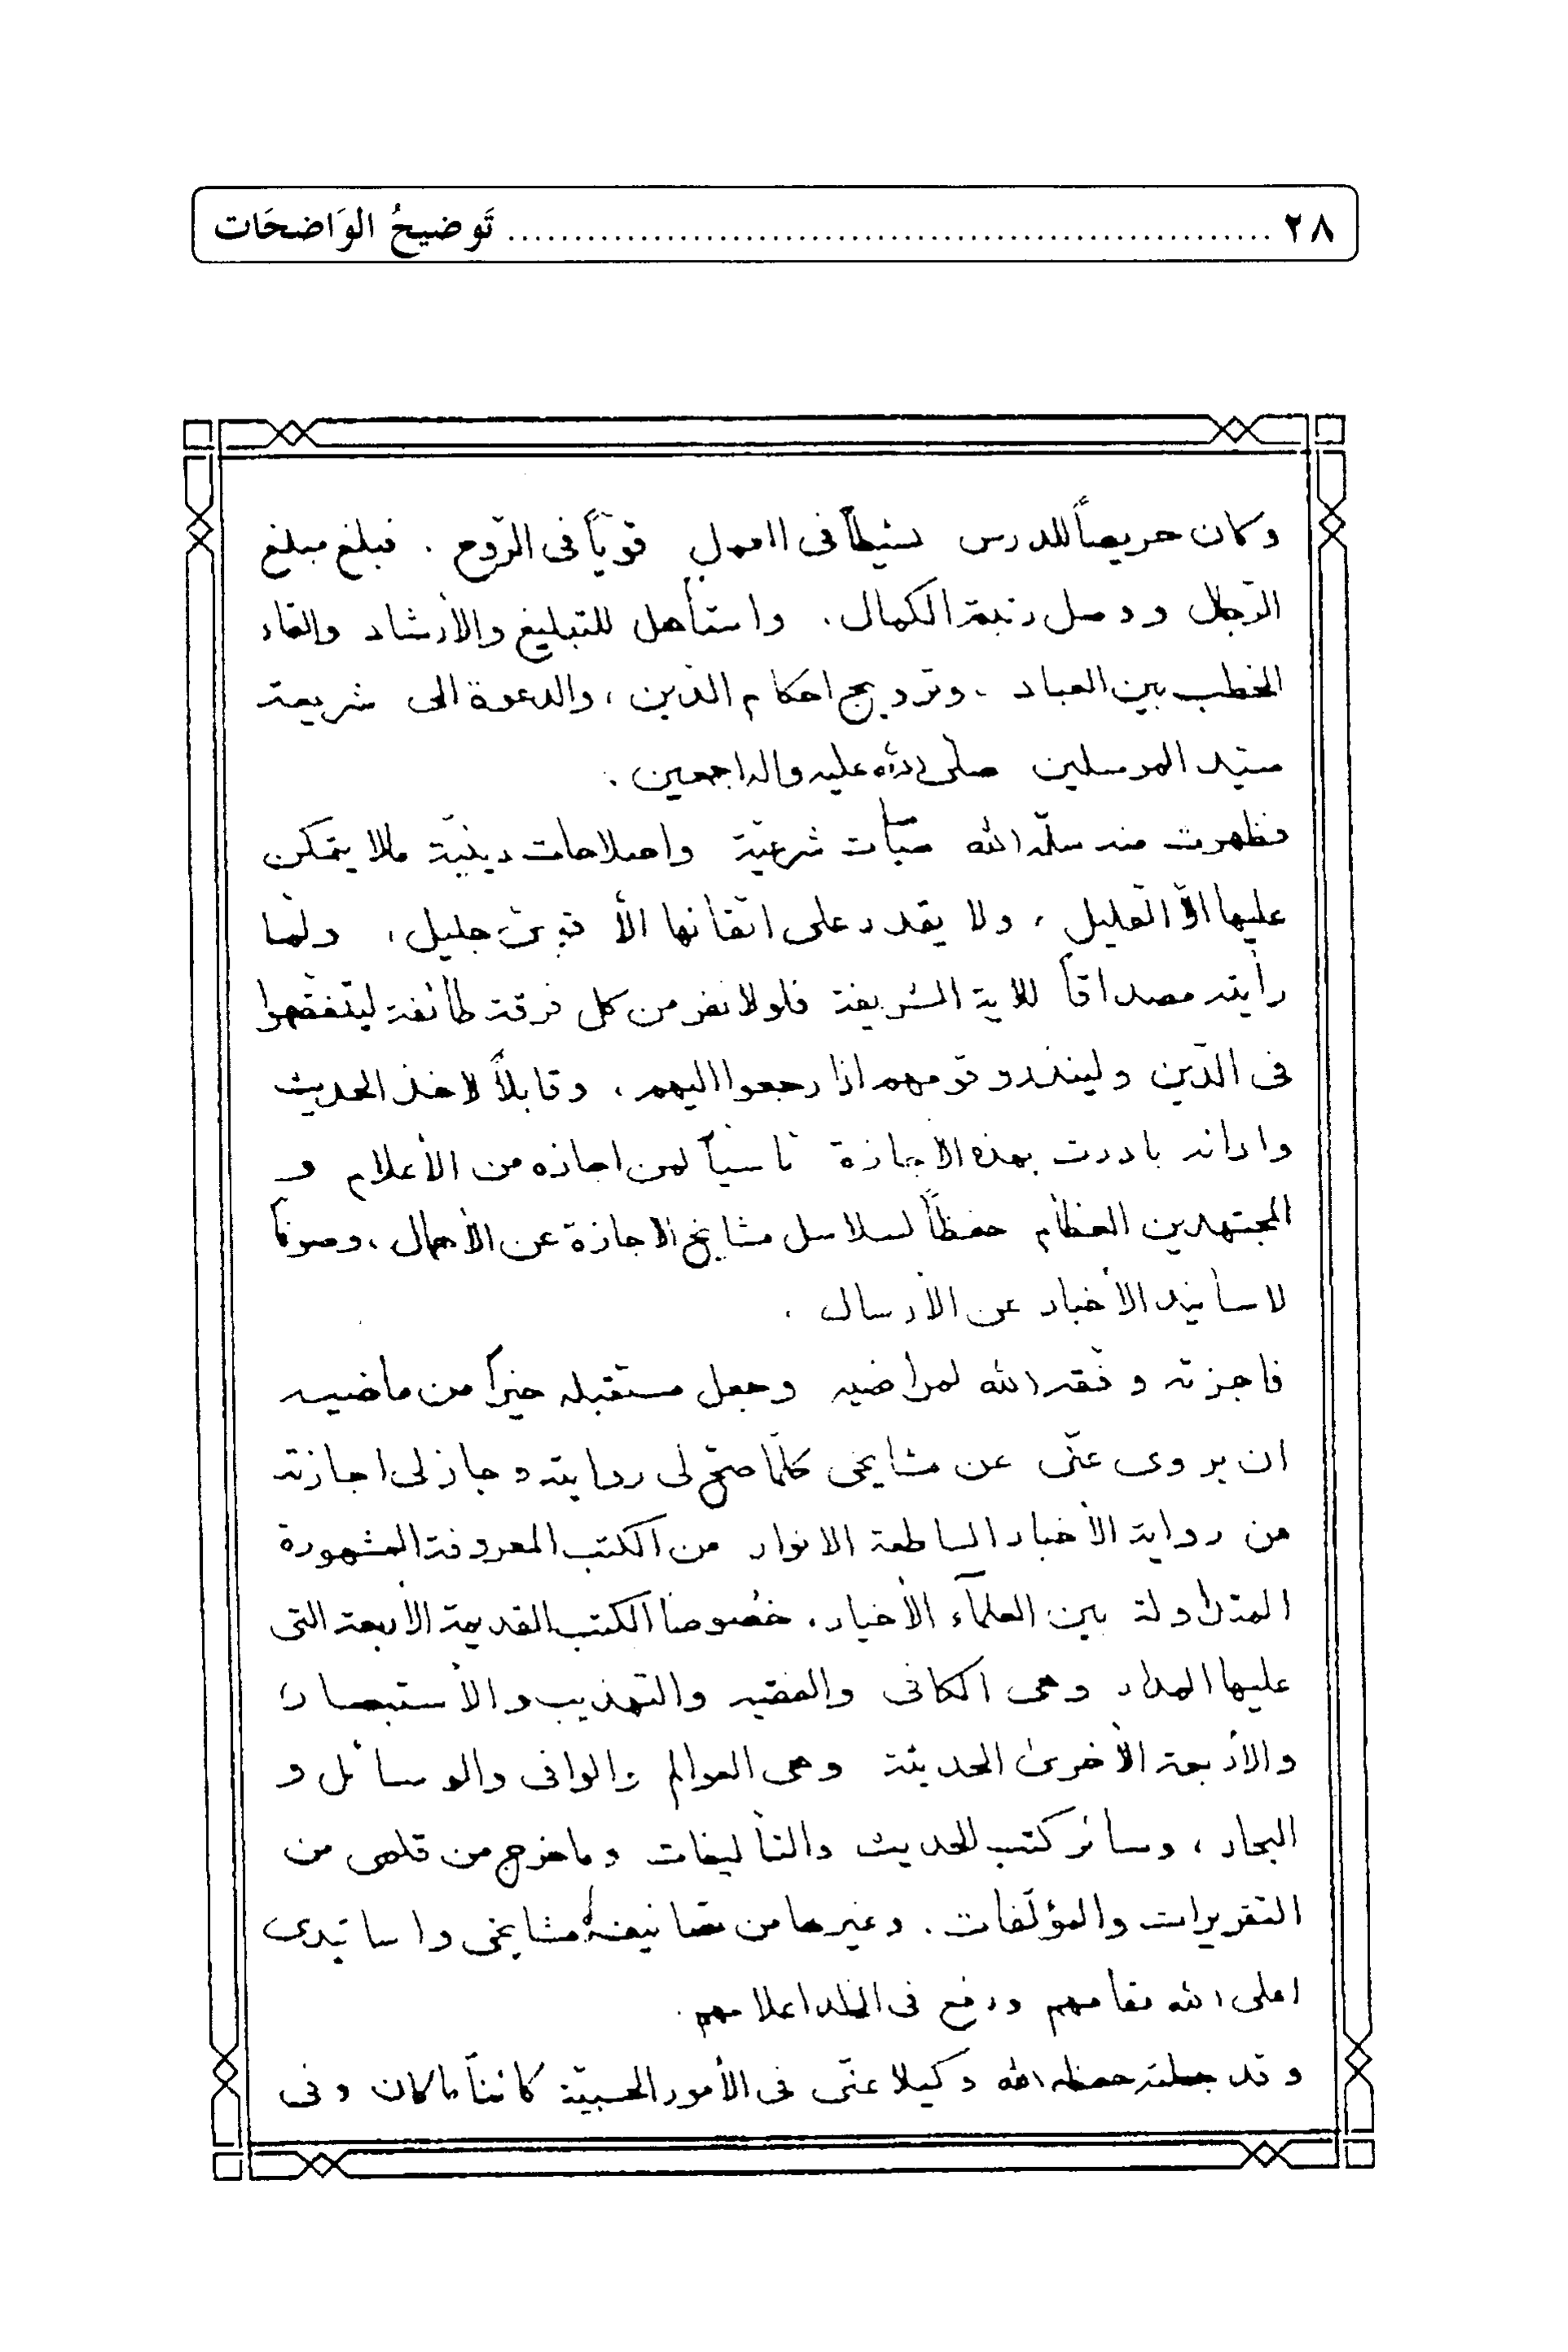 ٢٨ ........................................................ تَوضيحُ الوَاضحَات
وكان حريصاً للدرس نشيطاً فى العمل قويّاً فى الرّوح . فبلغ مبلغ
الرّجال ووصل رتبة الكمال . واستأهل للتبليغ والأرشاد والقاء
الخطب بين العباد . وترويج احكام الدّين ، والدعوة الى شريعة
سيّد المرسلين صلى الله عليه واله اجمعين .
فظهرت منه سلّمه الله شرعيّة واصلاحات دينيّة مالا يتمكن
عليها الاّ القليل ، ولا يقدر على اتقانها الاّ جليل ، ولمّا
رأيته مصداقاً للاية الشريفة فلولا نفر من كل فرقة طائفة ليتفقهوا
فى الدّين ولينذرو قومهم اذا رجعوا اليهم ، وقابلاً لاخذ الحديث
وادائه بادرت بهذه الاجازة تاسيّاً لمن اجازه من الأعلام و
المجتهدين العظام حفظاً لسلاسل مشايخ الاجازة عن الأهمال ، وصوناً
لاسانيد الأخبار عن الأرسال .
فاجزته وفّقه الله لمراضيه وجعل مستقبله خيراً من ماضيه
ان يروى عنّى عن مشايخى كلّما صحّ لى روايته وجاز لى اجازته
من رواية الأخبار الساطعة الانوار من الكتب المعروفة المشهورة
المتداولة بين العلمآء الأخيار . خصوصا الكتب القديمة الأربعة التى
عليها المدار وهى الكافى والفقيه والتهذيب والأستبصار
والأربعة الأخرى الحديثة وهى العوالم والوافى والوسائل و
البحار ، وسائر كتب الحديث والتأليفات وما خرج من قلمى من
التقريرات والمؤلّفات . وغيرها من تصانيف مشايخى واساتيدى
اعلى الله مقامهم ورفع فى الخلد اعلامهم .
وقد جعلته حفظه الله وكيلا عنّى فى الأمور الحسبيّة كائناً ما كان وفى